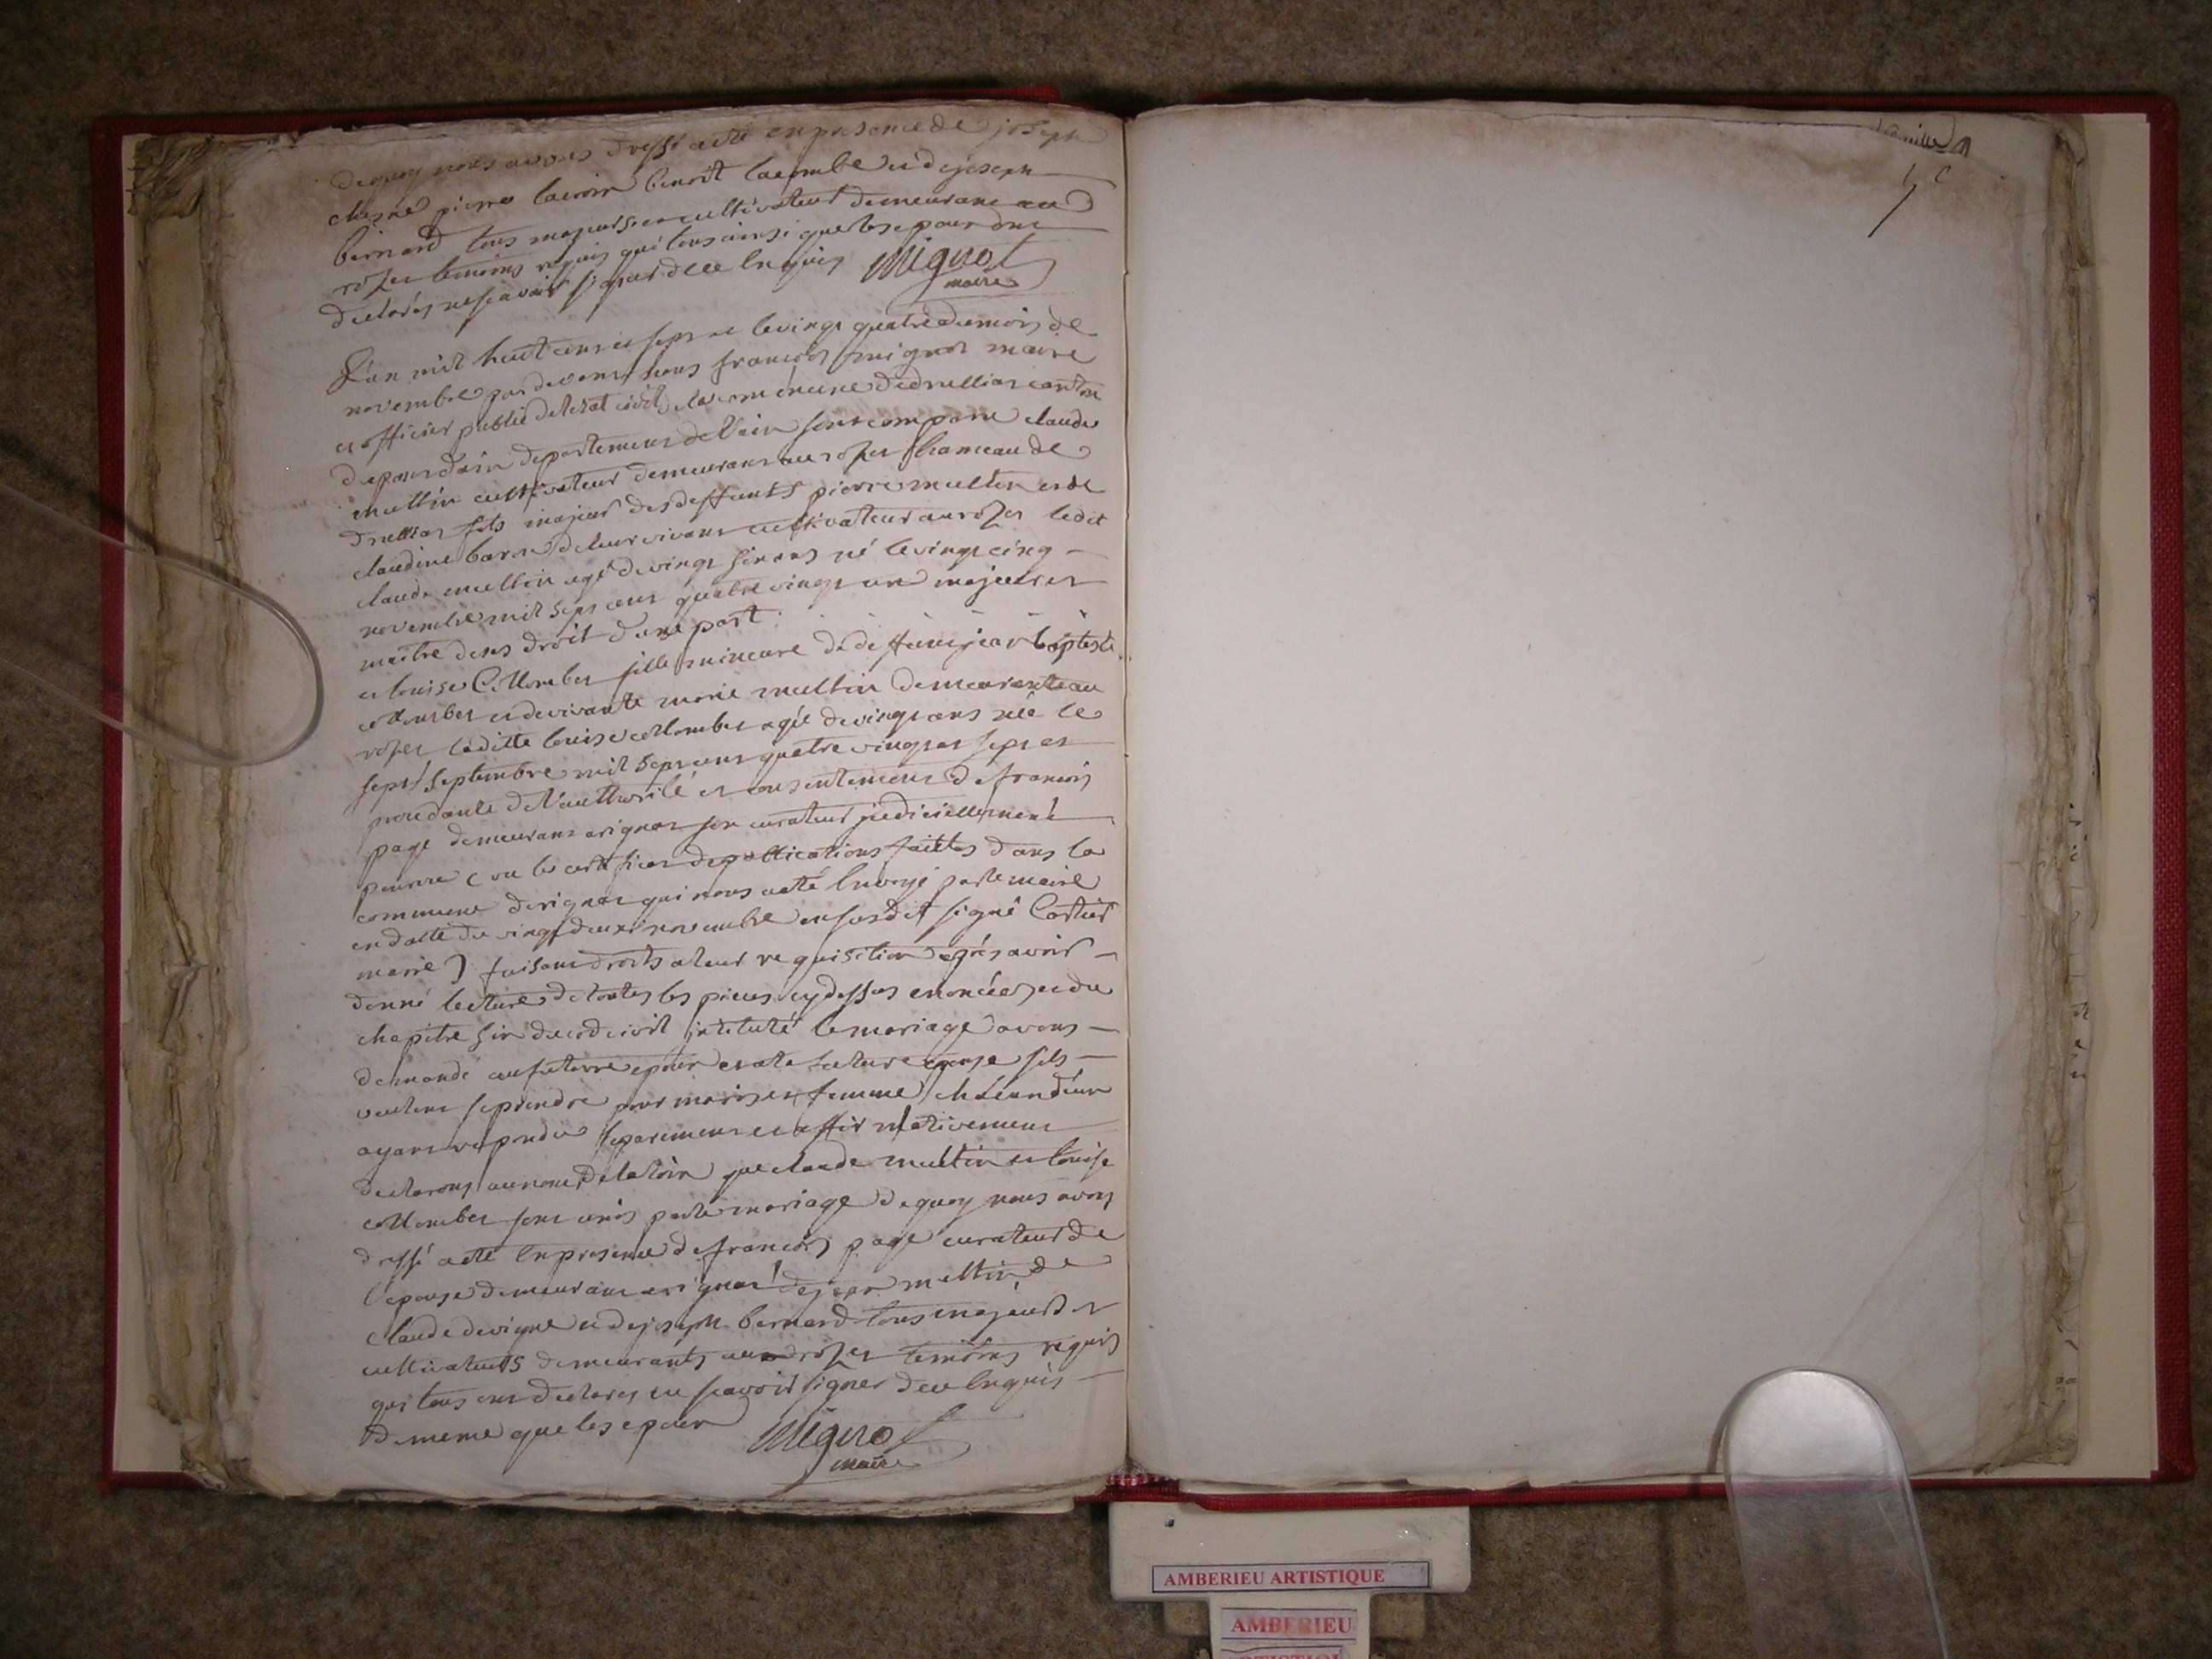 dequoy nous avons dressé acte en presence de joseph
chesne pierre lacroix benoit lacombe et de joseph
bernard tous majeurs et cultivateur demeurant au
rozet temoins requis qui tous ainsi que les epoux ont
declarés ne scavoir signer de ce enquis Mignot
maire
L'an mil huit cent et sept et le vingt quatre du mois de
novembre par devant nous francois mignot maire
et officier public de letat civil de la commune de druillat canton
de pont dain departement de l'ain sont comparu claude
multin cultivateur demeurant au rozet hameau de
druillat fils majeur des deffunts pierre multin et de
claudine baron de leur vivant cultivateur au rozet ledit
claude multin agé de vingt six ans né le vingt cinq
novembre mil sept cent quatre vingt un majeur et
maitre de ses droit d'une part
et louise Collombet fille mineure de deffunt jean baptiste
collombet et de vivante marie multin demeurante au
rozet laditte louise collombet agée de vingt ans née le
sept septembre mil sept cent quatre vingt et sept et
procedante de l'authorité et consentement de francois
page demeurant a rignat son curateur judiciellement
pourvu (vu le certificat de publications faittes dans la
commune de rignat qui nous a été envoyé par le maire
en datte du vingt deux novembre en susdit signé
maire) faisant droits a leur requisition apres avoir
donné lecture de toutes les pieces cy dessus enoncées et du
chapitre six du code civil intitulé le mariage avons
demandé au future epoux et a la future epouse sils
veulent se prendre pour maris et femme chacun deux
ayant repondu separement et affirmativement
declarons au nom de la loix que claude multin et louise
collombet sont unis par le mariage de quoy nous avons
dressé acte en presence de francois page curateur de
l'epouse demeurant a rignat de jean multin de
claude devigne et de joseph bernard tous majeurs et
cultivateurs demeurants au rozet temoins requis
qui tous ont declarés ne scavoir signer de ce enquis
de meme que les epoux Mignot
maire
AMBERIEU ARTISTIQUE
AMBERIEU
ARTISTIQUE